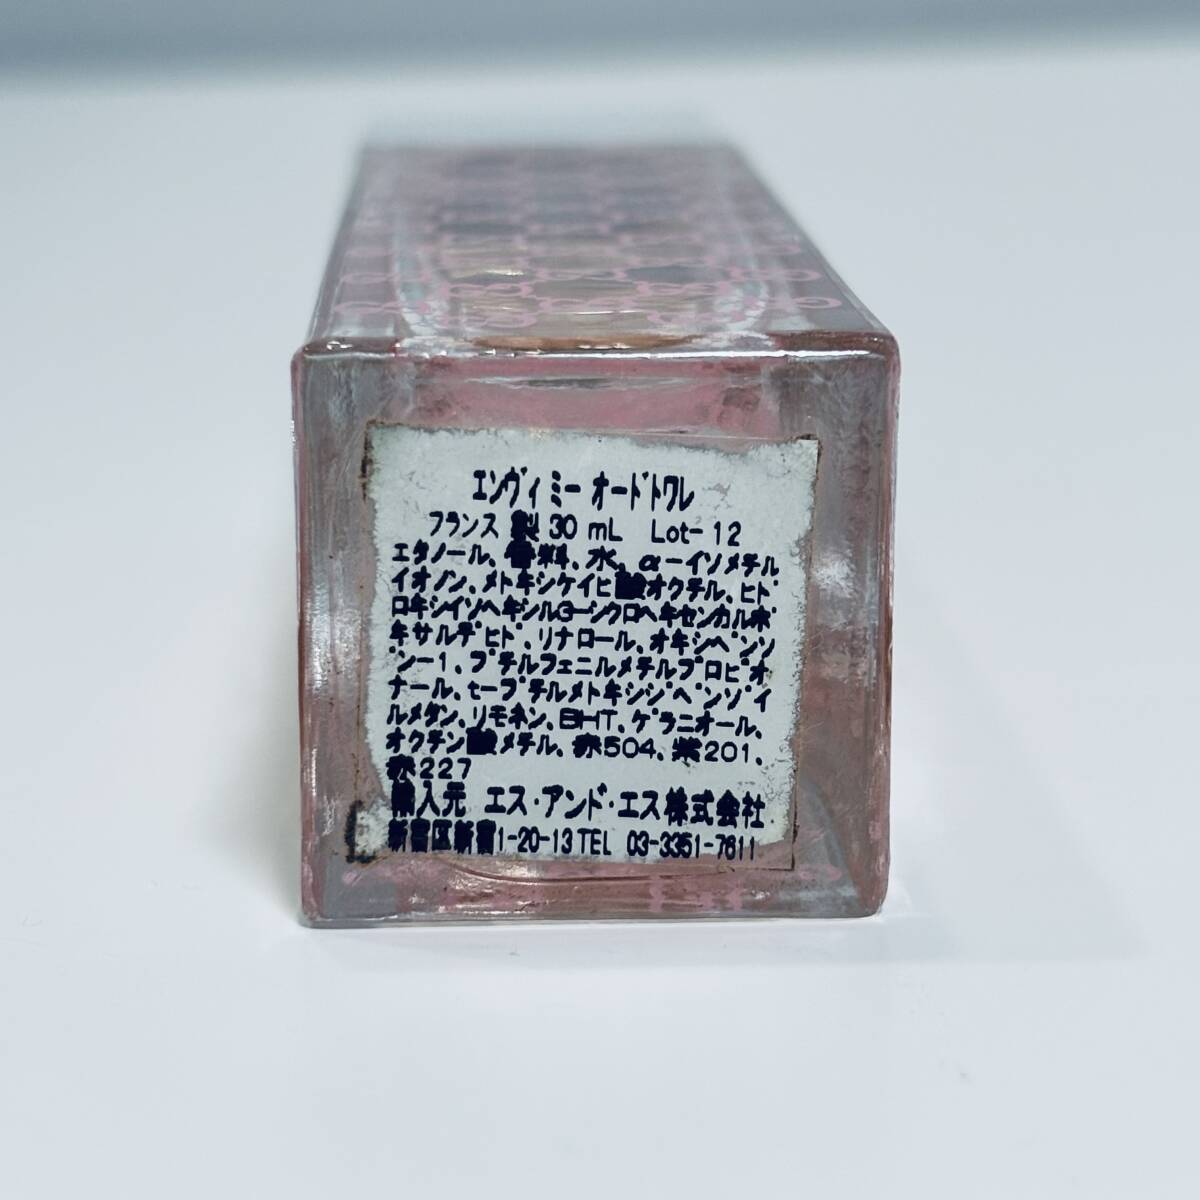 エンヴィ ミー オードトワレ
フランス 製 30 mL Lot-12
エタノール、香料、水、α-イソメチル
イオノン、メトキシケイヒ酸オクチル、ヒド
ロキシイソヘキシル3-シクロヘキセンカルボ
キサルデヒド、リナロール、オキシベンゾ
ン-1、ブチルフェニルメチルプロピオ
ナール、t-ブチルメトキシジベンゾイ
ルメタン、リモネン、BHT、ゲラニオール、
オクチン酸メチル、赤504、紫201、
赤227
輸入元 エス・アンド・エス株式会社
新宿区新宿1-20-13 TEL 03-3351-7611